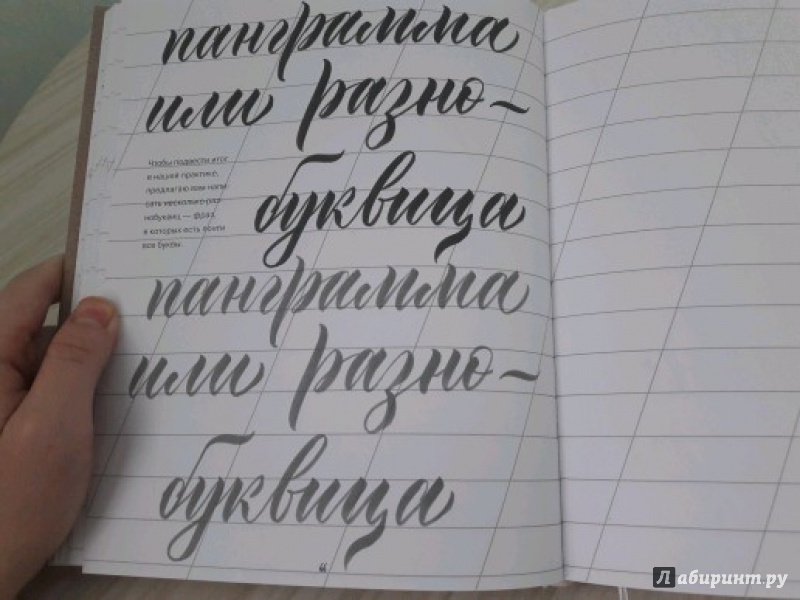 панграмма
или разно-
буквица
Чтобы подвести итог
в нашей практике,
предлагаю вам напи
сать несколько раз
нобуквиц — фраз,
в которых есть почти
все буквы.
панграмма
или разно-
буквица
Лабиринт.ру